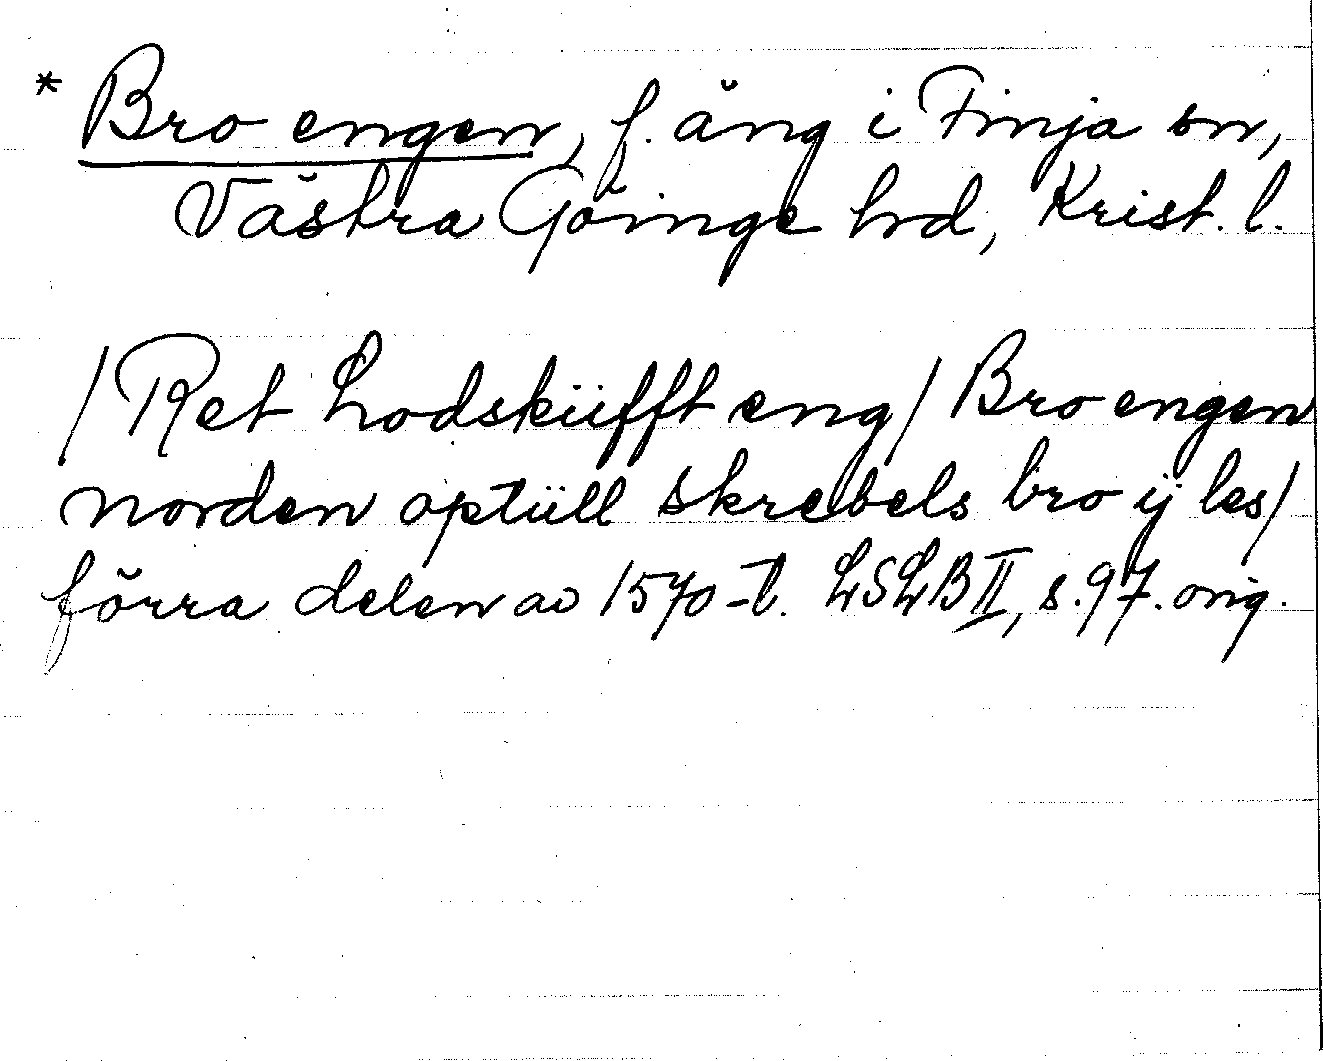 * Bro engen, f. äng i Finja sn,
Västra Göinge hd, Krist. l.
/Ret Lodskiifft eng/ Bro engen
norden optiill skrebels bro ij les/
förra delen av 1570-t. LSLB II, s. 97. orig.